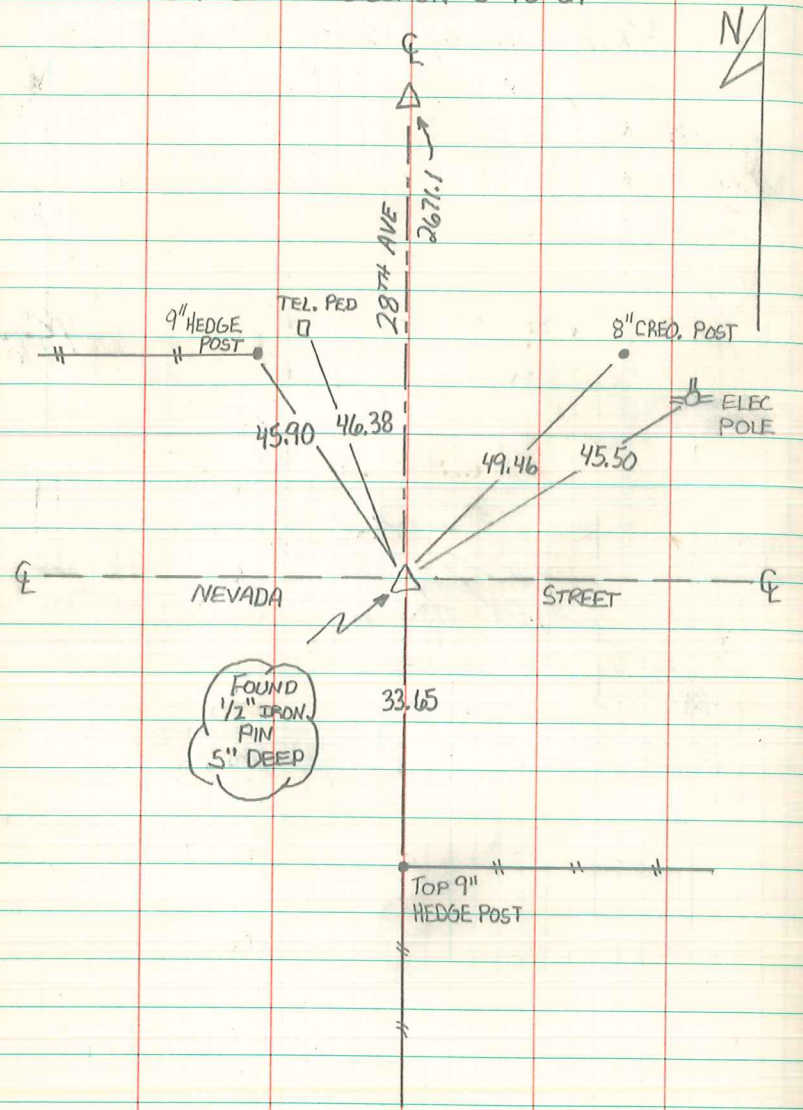 ℄
N
28TH AVE
2671.1
TEL. PED
9" HEDGE
POST
8" CREO. POST
ELEC
POLE
45.90
46.38
49.46
45.50
℄
℄
NEVADA STREET
FOUND
1/2" IRON
PIN
5" DEEP
33.65
TOP 9"
HEDGE POST